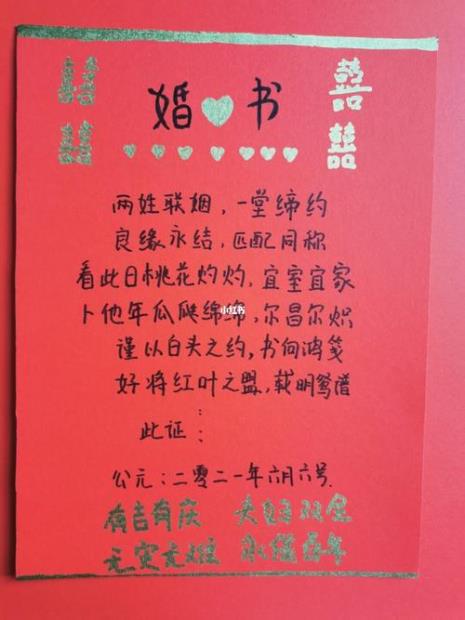 囍 囍
婚书
囍 囍
两姓联姻,一堂缔约
良缘永结,匹配同称
看此日桃花灼灼,宜室宜家
卜他年瓜瓞绵绵,尔昌尔炽
小红书
谨以白头之约,书向鸿笺
好将红叶之盟,载明鸳谱
此证:
公元:二零二一年六月六号.
有吉有庆 夫妇双全
无灾无难 永保百年